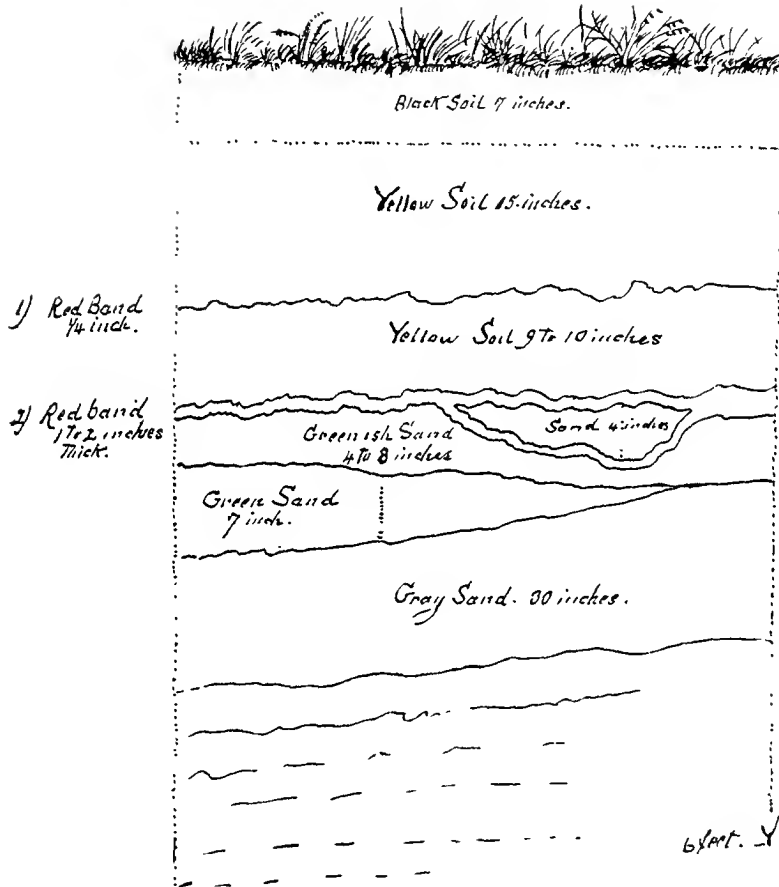 Black Soil 7 inches.
Yellow Soil 15 inches.
1) Red Band
1/4 inch.
Yellow Soil 9 to 10 inches
2) Red band
1 to 2 inches
Thick.
Sand 4 inches
Greenish Sand
4 to 8 inches
Green Sand
7 inch.
Gray Sand. 30 inches.
6 feet.